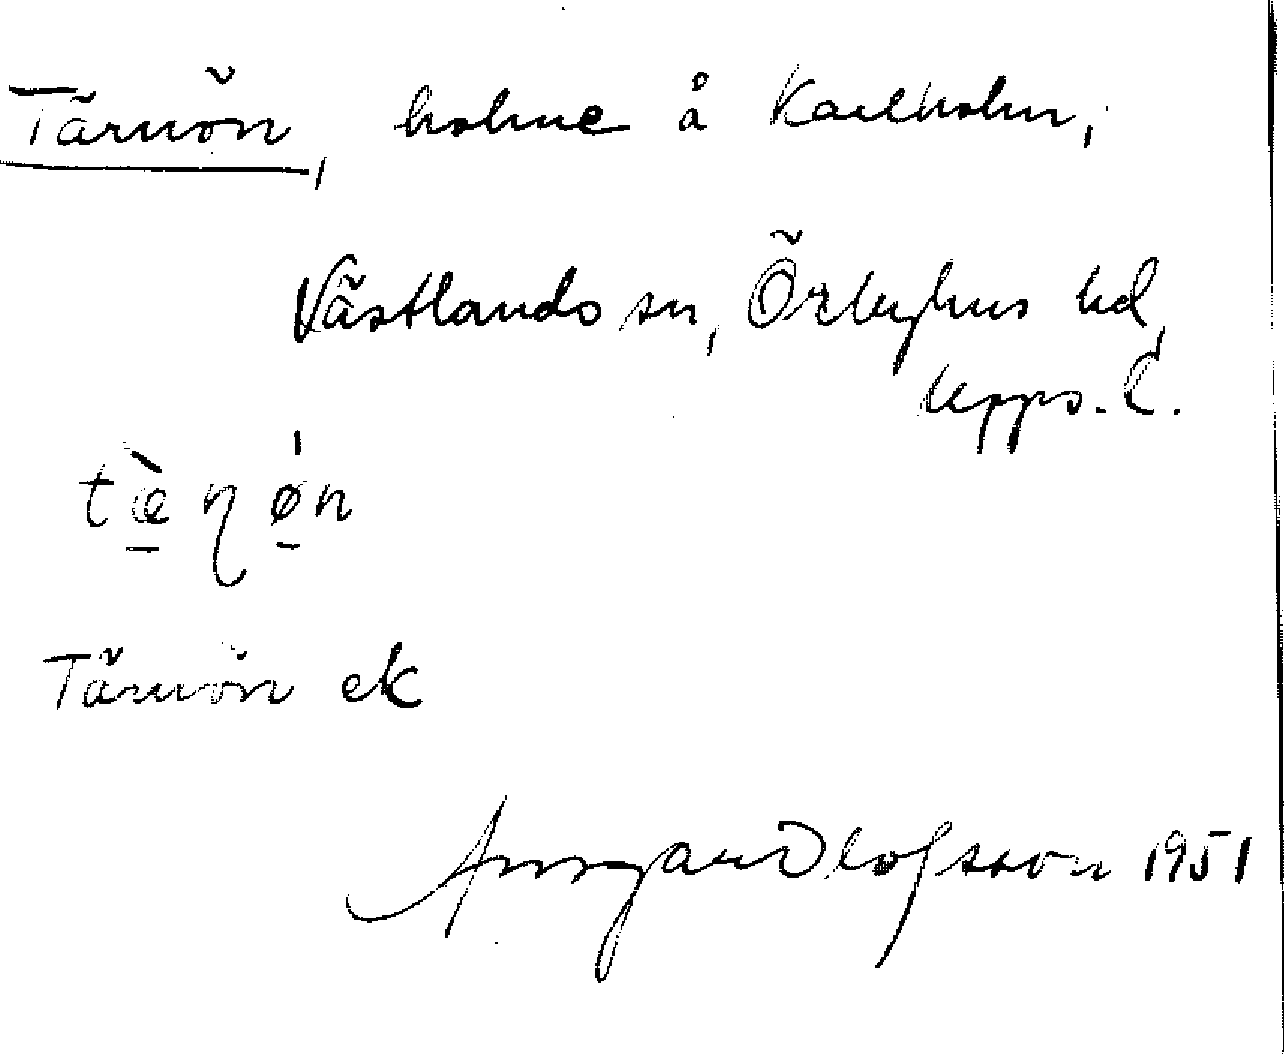 Tärnön, holme å Karlholm,
Västlands sn, Örbyhus hd,
Upps. l.
tæ̀ṇø̀n
Tärnön ek
Ansgar Olofsson 1951